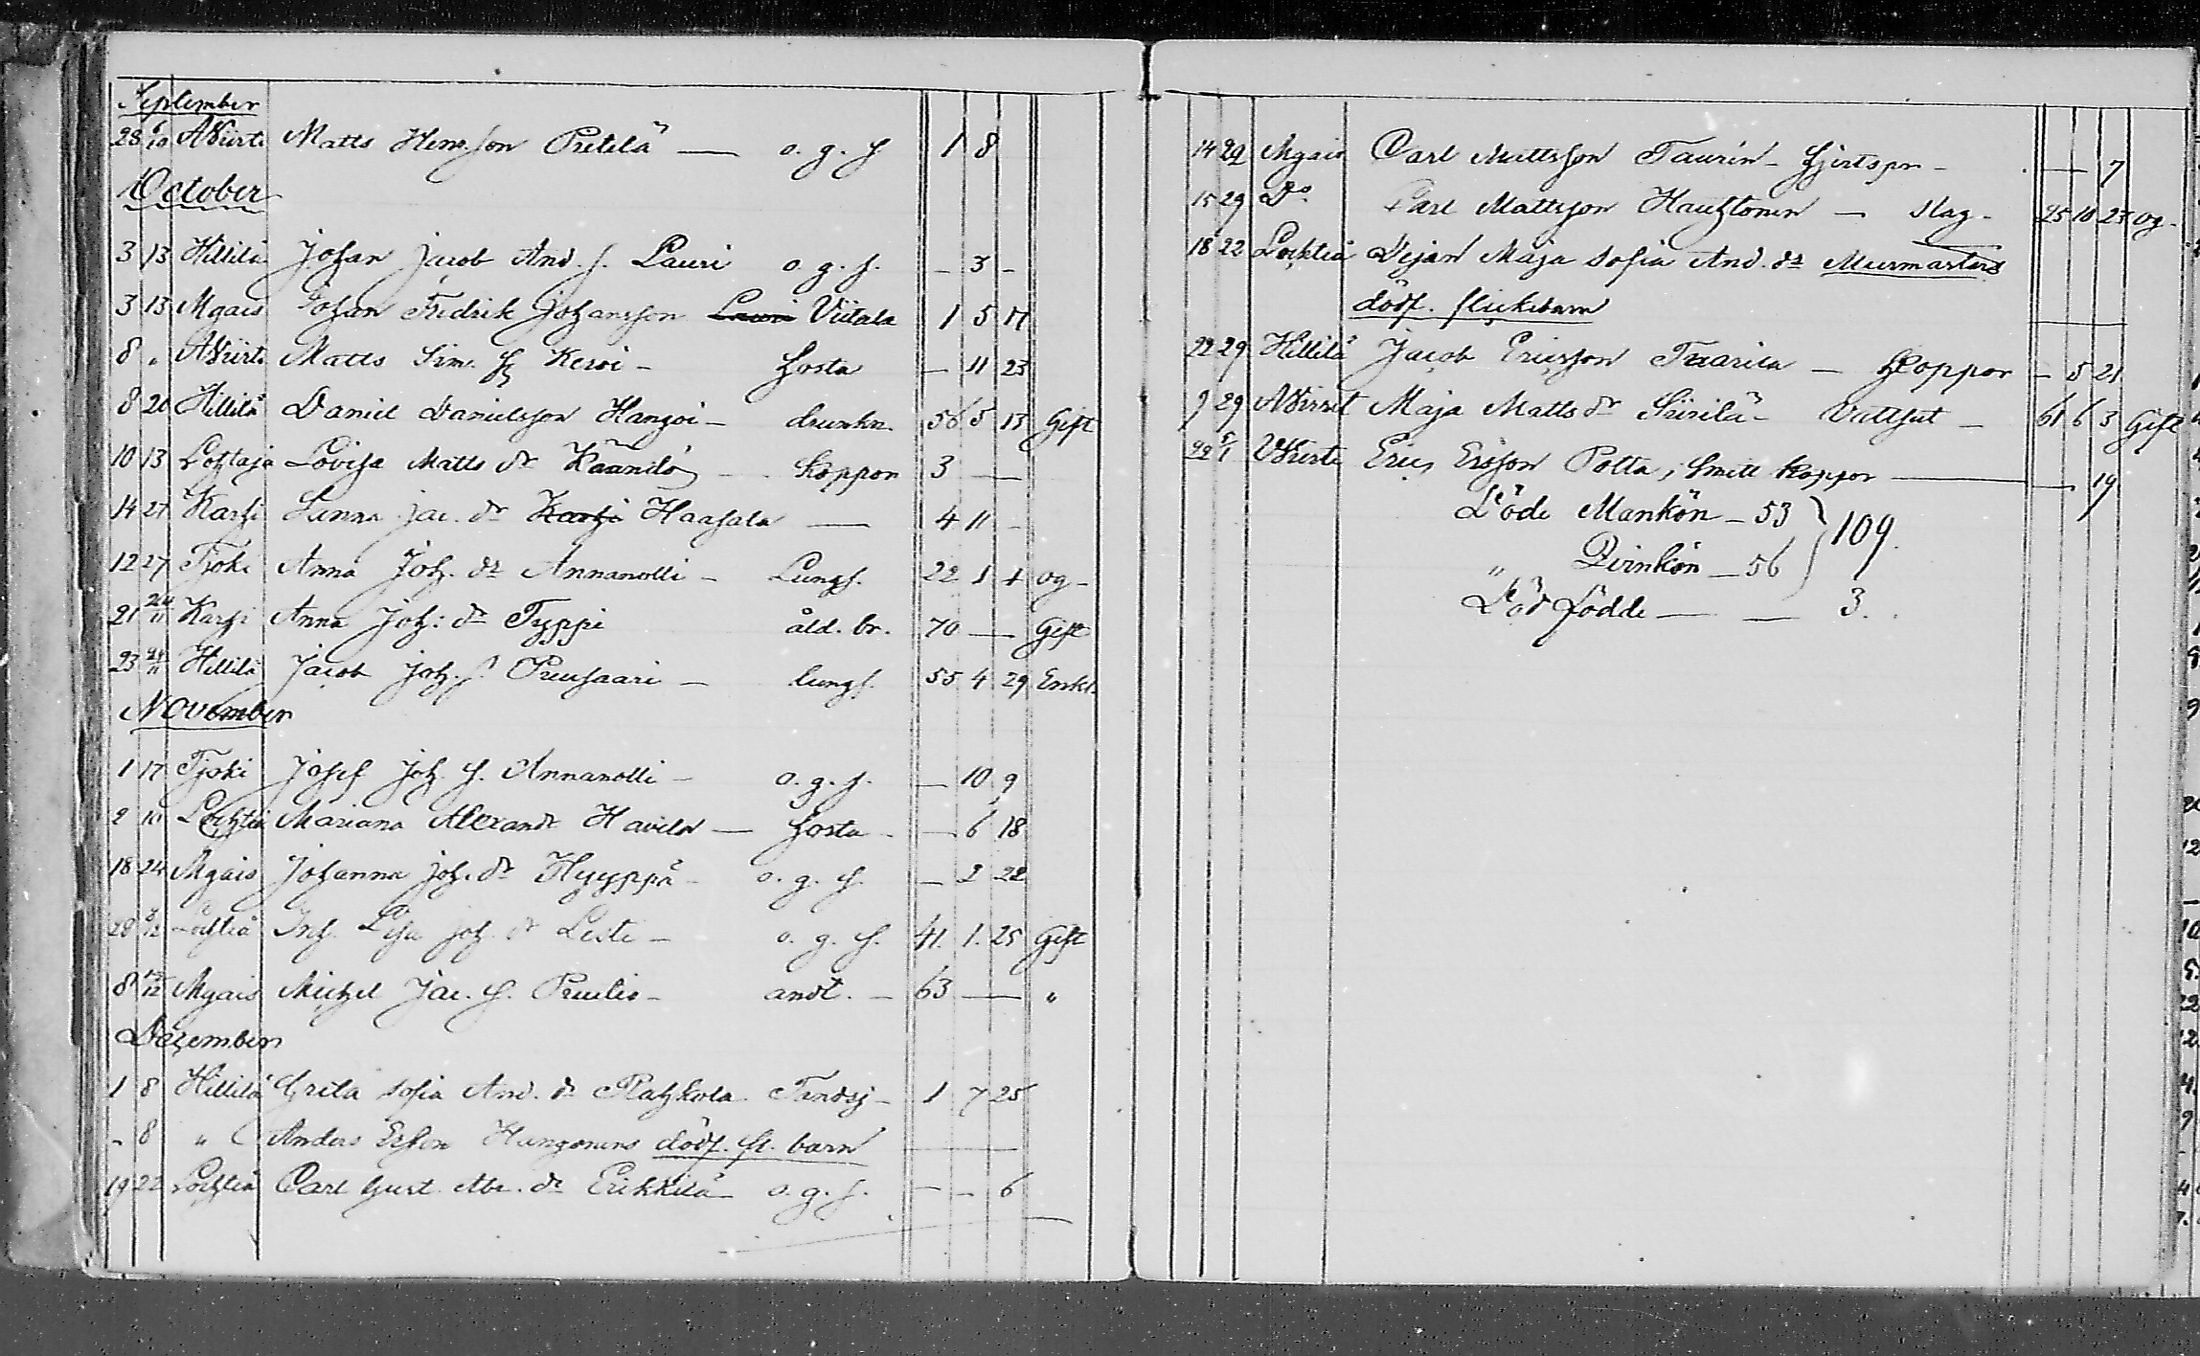 September
28 6/10 NWirte Matts Hens.son Pretilä — o. g. s 1 8
October
3 13 Hillilä Johan Jacob And. s. Lauri o. g. s. — 3 —
3 13 Mgais Johan Fredrik Johansson Lauri Viitala 1 5 17
8 „ NWirte Matts Sim. s Keroi — hosta — 11 23
8 20 Hillilä Daniel Danielsson Hangoi — drunkn. 56 5 13 Gift
10 13 Lohtaja Lovisa Matts dr Kännilö — koppon 3 —
14 27 Karhi Sanna Jac. dr Karhi Haasala — 4 11 —
12 27 Tjoki Anna Joh. dr Annanolli — Lungs. 22 1 4 og —
21 /11 Karhi Anna Joh: dr Typpi åld. br. 70 — Gift
23 24/11 Hillilä Jacob Joh. s Pruusaari — lungs. 55 4 29 Enkl.
November
1 17 Tjoki Josef Joh. s. Annanolli — o. g. s. — 10 9
2 10 Lochteå Mariana Alexandr Havila — hosta — — 6 18
18 24 Mgais Johanna Joh. dr Hyyppä — o. g. s. — 2 22
28 8/12 Lochteå Inh. Lisa Joh. dr Leste — o. g. s. 41. 1. 25 Gift
8 /12 Mgais Michel Jac. s. Pruulis — andt. — 63 — „
December
1 8 Hillilä Greta Sofia And. dr Plathkola Tandsj — 1 7 25
— 8 „ Anders Ersson Hangonens dödf. fl. barn —
19 22 Lochteå Carl Gust. Abr. dr Erikkilä — o. g. s. — — 6
14 29 Mgais Carl Mattsson Taurén — hjertspr — — 7
15 29 Do Carl Mattsson Hauhtonen — slag — 25 10 23 og —
18 22 Lochteå Pejan Maja Sofia And. dr Murmasters
dödf. flickebarn —
22 29 Hillilä Jacob Ericsson Tuarila — koppor — 5 21
9 29 NWirret Maja Matts dr Siirilä — Vattsut — 61 6 3 Gift
22 5/1 Wirte Eric Ersson Potta, smitt koppor — — 19
Döde Mankön — 53 } 109.
„ Qvinkön — 56
Död födde — — 3.